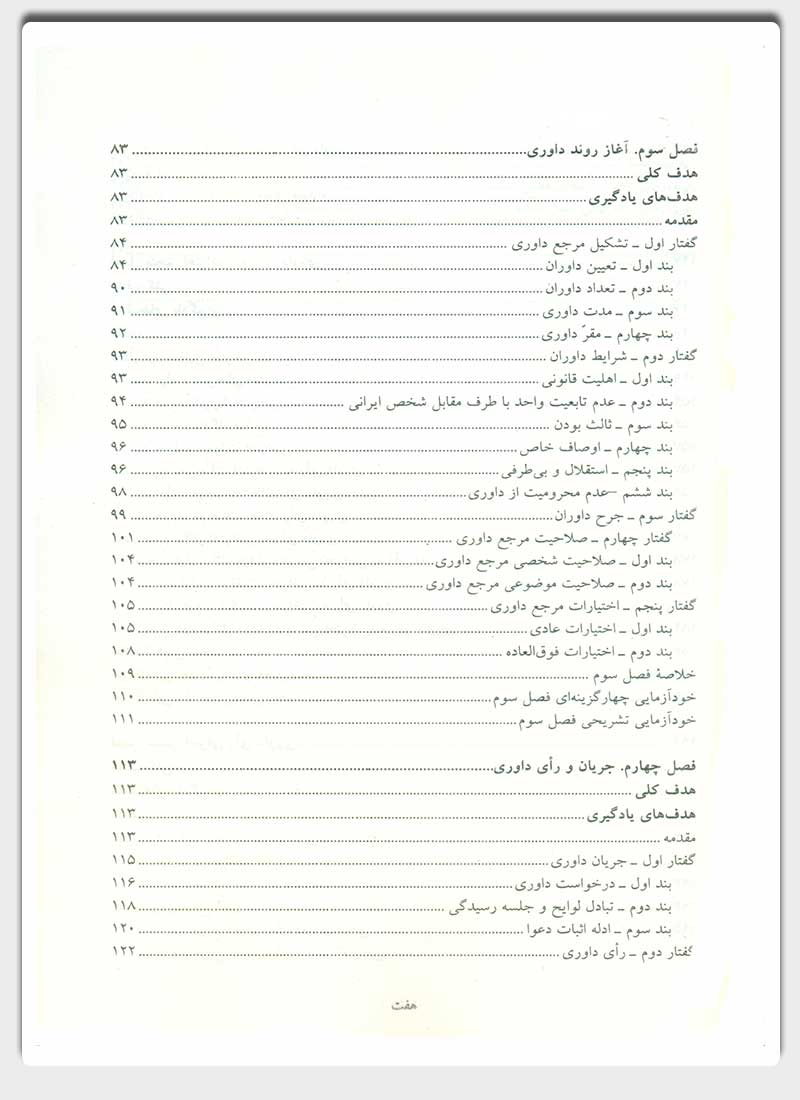 فصل سوم. آغاز روند داوری ........ ۸۳
هدف کلی ........ ۸۳
هدف‌های یادگیری ........ ۸۳
مقدمه ........ ۸۳
گفتار اول ـ تشکیل مرجع داوری ........ ۸۴
بند اول ـ تعیین داوران ........ ۸۴
بند دوم ـ تعداد داوران ........ ۹۰
بند سوم ـ مدت داوری ........ ۹۱
بند چهارم ـ مقرّ داوری ........ ۹۲
گفتار دوم ـ شرایط داوران ........ ۹۳
بند اول ـ اهلیت قانونی ........ ۹۳
بند دوم ـ عدم تابعیت واحد با طرف مقابل شخص ایرانی ........ ۹۴
بند سوم ـ ثالث بودن ........ ۹۵
بند چهارم ـ اوصاف خاص ........ ۹۶
بند پنجم ـ استقلال و بی‌طرفی ........ ۹۶
بند ششم –عدم محرومیت از داوری ........ ۹۸
گفتار سوم ـ جرح داوران ........ ۹۹
گفتار چهارم ـ صلاحیت مرجع داوری ........ ۱۰۱
بند اول ـ صلاحیت شخصی مرجع داوری ........ ۱۰۴
بند دوم ـ صلاحیت موضوعی مرجع داوری ........ ۱۰۴
گفتار پنجم ـ اختیارات مرجع داوری ........ ۱۰۵
بند اول ـ اختیارات عادی ........ ۱۰۵
بند دوم ـ اختیارات فوق‌العاده ........ ۱۰۸
خلاصهٔ فصل سوم ........ ۱۰۹
خودآزمایی چهارگزینه‌ای فصل سوم ........ ۱۱۰
خودآزمایی تشریحی فصل سوم ........ ۱۱۱
فصل چهارم. جریان و رأی داوری ........ ۱۱۳
هدف کلی ........ ۱۱۳
هدف‌های یادگیری ........ ۱۱۳
مقدمه ........ ۱۱۳
گفتار اول ـ جریان داوری ........ ۱۱۵
بند اول ـ درخواست داوری ........ ۱۱۶
بند دوم ـ تبادل لوایح و جلسه رسیدگی ........ ۱۱۸
بند سوم ـ ادله اثبات دعوا ........ ۱۲۰
گفتار دوم ـ رأی داوری ........ ۱۲۲
هفت